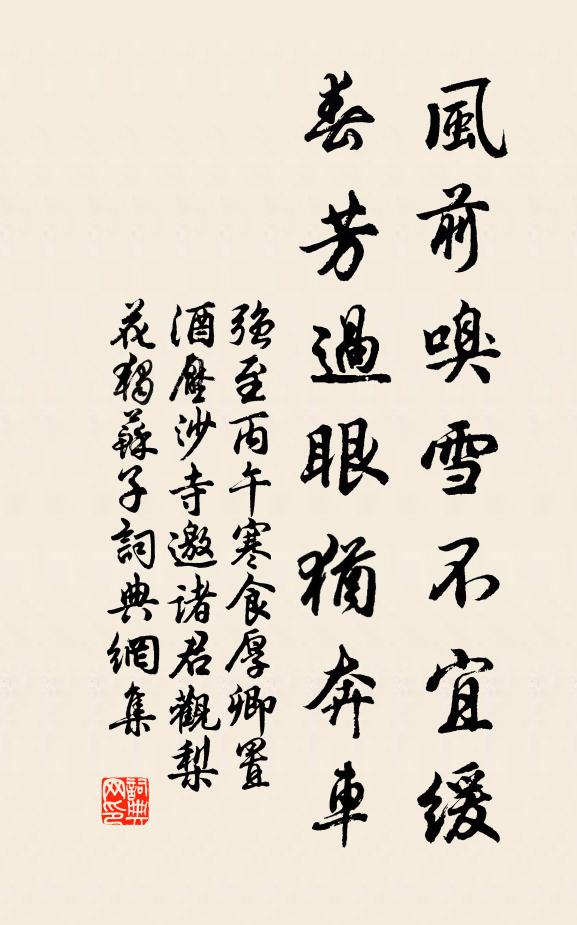 風前嗅雪不宜緩
春芳過眼猶奔車
強至丙午寒食厚卿置
酒壓沙寺邀諸君觀梨
花獨蘇子詞典網集
詞典
网印